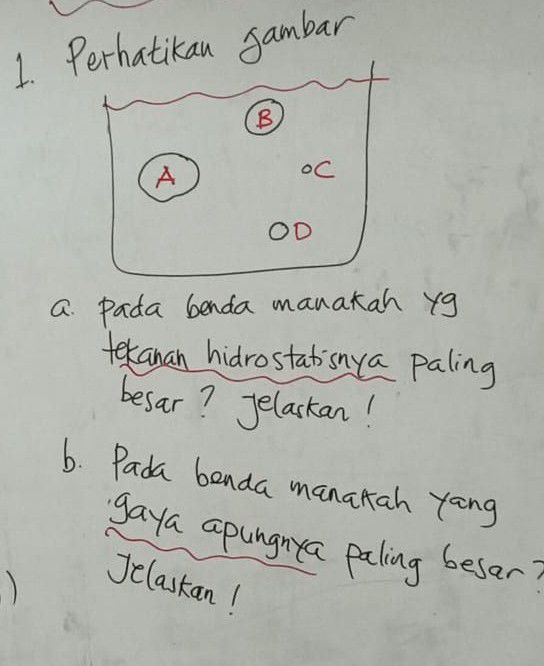 1. Perhatikan gambar
B
A
C
D
a. pada benda manakah yg
tekanan hidrostatisnya paling
besar? Jelaskan!
b. Pada benda manakah yang
gaya apungnya paling besar?
Jelaskan!
)